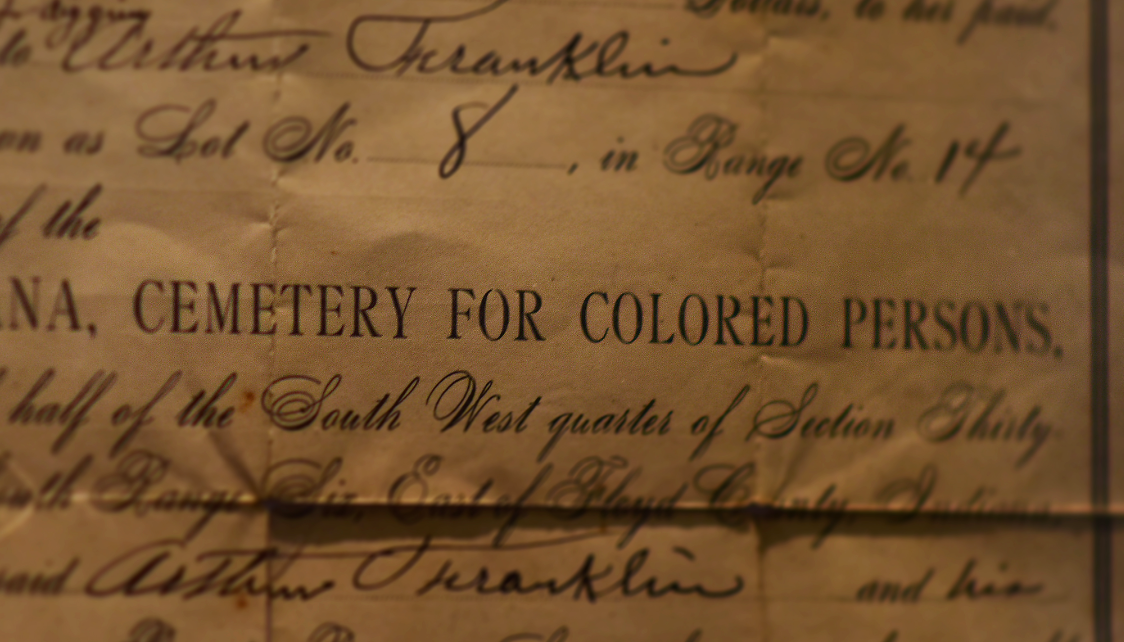 Dollars, to her paid,
to Arthur Franklin
on as Lot No. 8, in Range No. 14
of the
ANA, CEMETERY FOR COLORED PERSONS,
half of the South West quarter of Section Thirty
Range Six, East of Floyd County, Indiana,
said Arthur Franklin and his